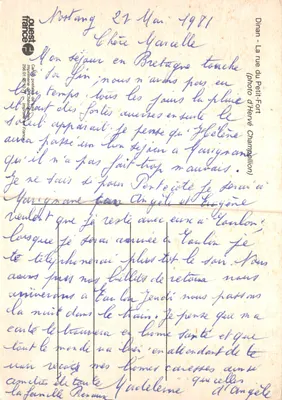 Nostang 27 Mai 1981
Chère Marcelle
Mon séjour en Bretagne touche
sa fin nous n'avons pas eu
temps tous les jours la pluie
et des fortes averses ensuite le
soleil apparait je pense qu'Hélène
aura passé un bon séjour a Marignane
qu'il n'a pas fait trop mauvais.
Je ne sais si pour Pentecôte je serai à
Marignane car Angèle et Eugène
veulent que je reste avec eux à Toulon,
lorsque je serai arrivée à Toulon je
te téléphonerai plus tôt le soir. Nous
avons pris nos billets de retour nous
arriverons à Toulon Jeudi nous passons
la nuit dans le train. Je pense que ma
carte te trouvera en bonne santé et que
tout le monde va bien en attendant de te
voir reçois mes bonnes caresses ainsi
que celles
amitiés de toute Madeleine d'Angèle
la famille
ouest
france
Dinan - La rue du Petit-Fort
(photo d'Hervé Champollion)